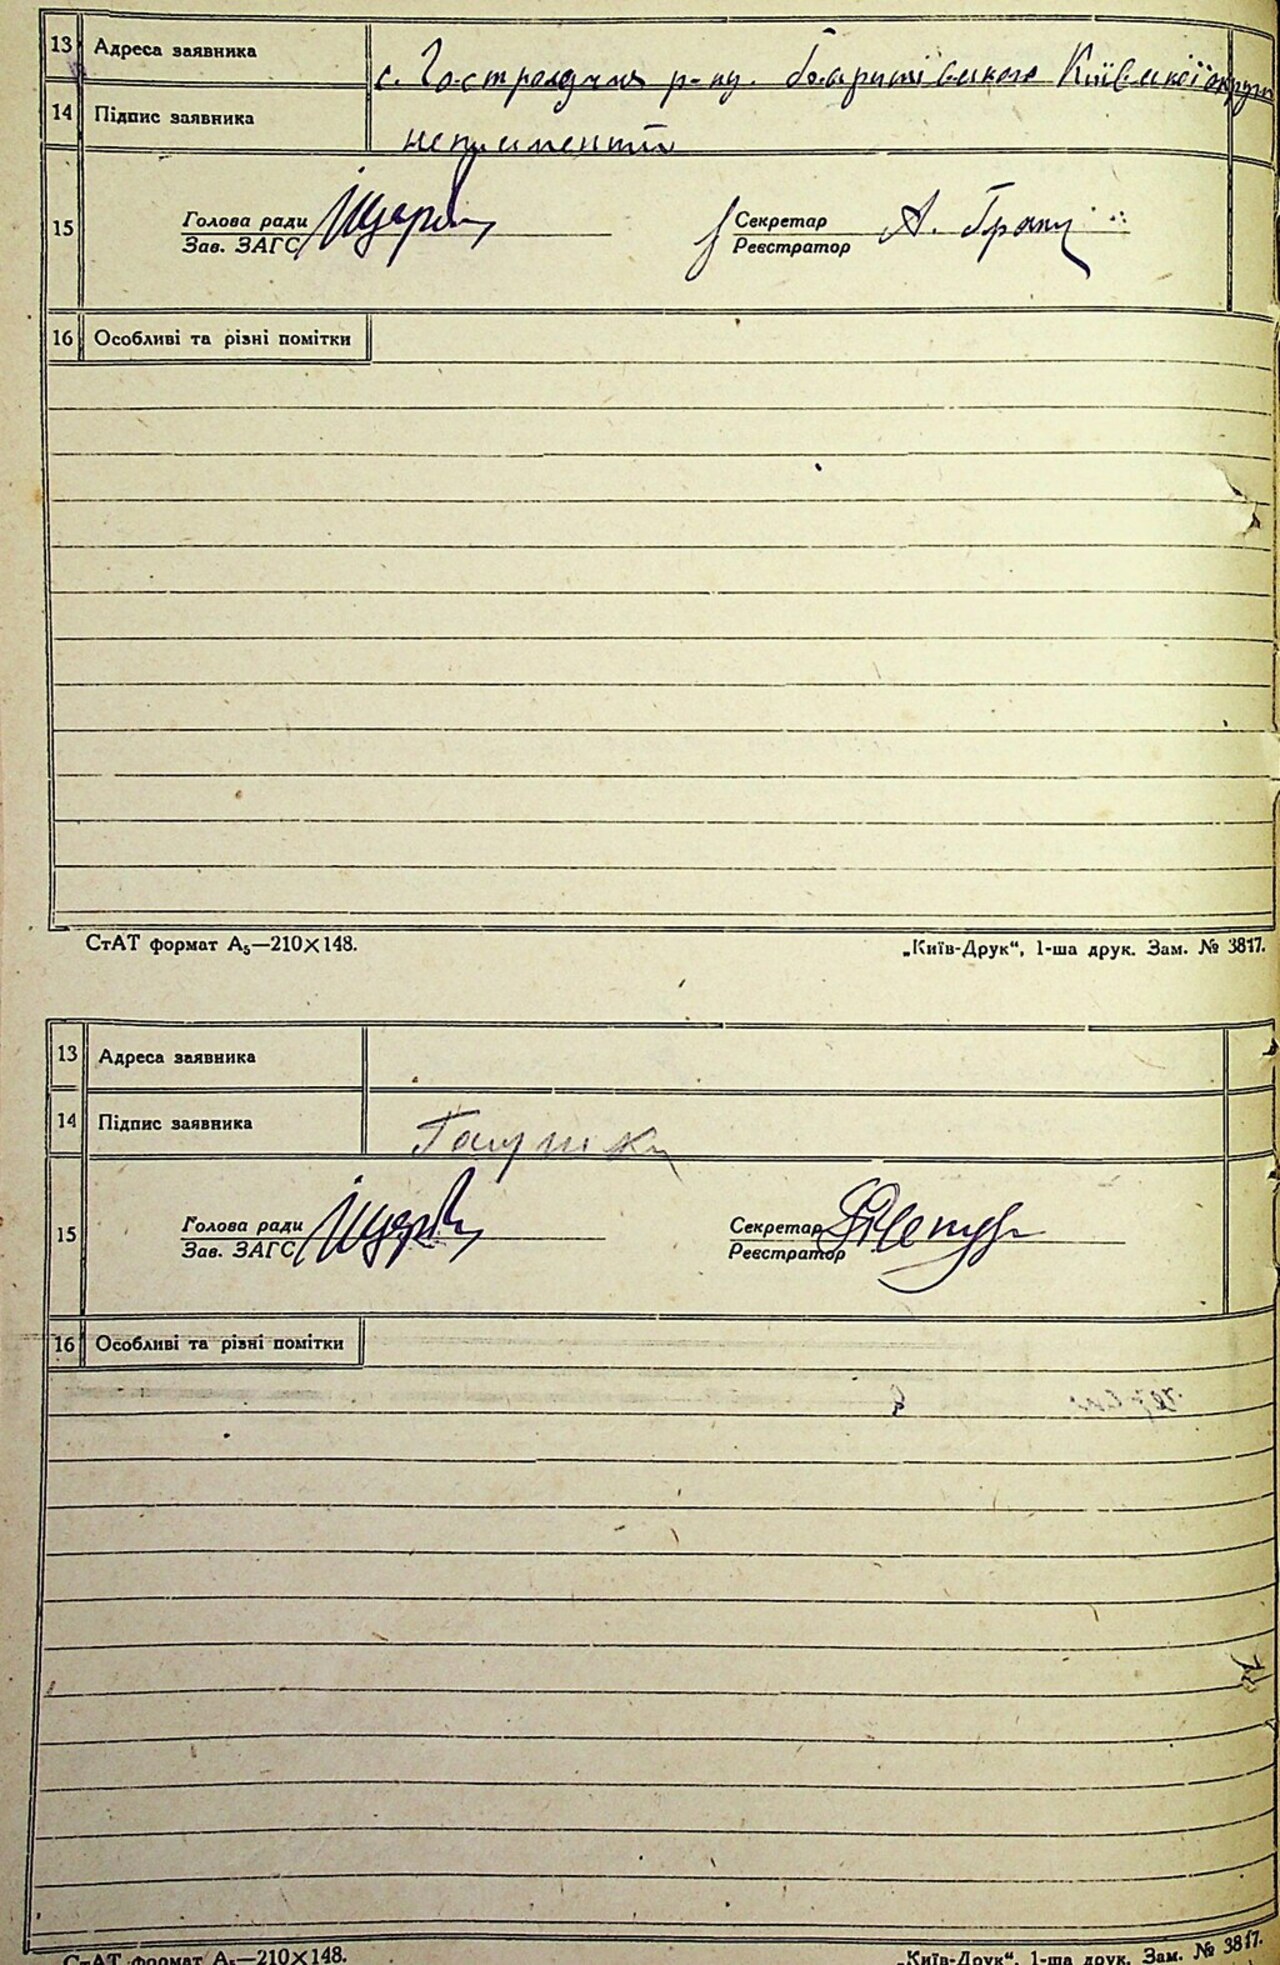 13 Адреса заявника с. Гостролуччя р-ну. Баришівського Київської округи
14 Підпис заявника неписьменний
15 Голова ради Секретар А. Грам
Зав. ЗАГС Реєстратор
16 Особливі та різні помітки
СтАТ формат А₅—210×148. „Київ-Друк“, 1-ша друк. Зам. № 3817.
13 Адреса заявника
14 Підпис заявника Галушка
15 Голова ради Секретар
Зав. ЗАГС Реєстратор
16 Особливі та різні помітки
СтАТ формат А₅—210×148. „Київ-Друк“, 1-ша друк. Зам. № 3817.